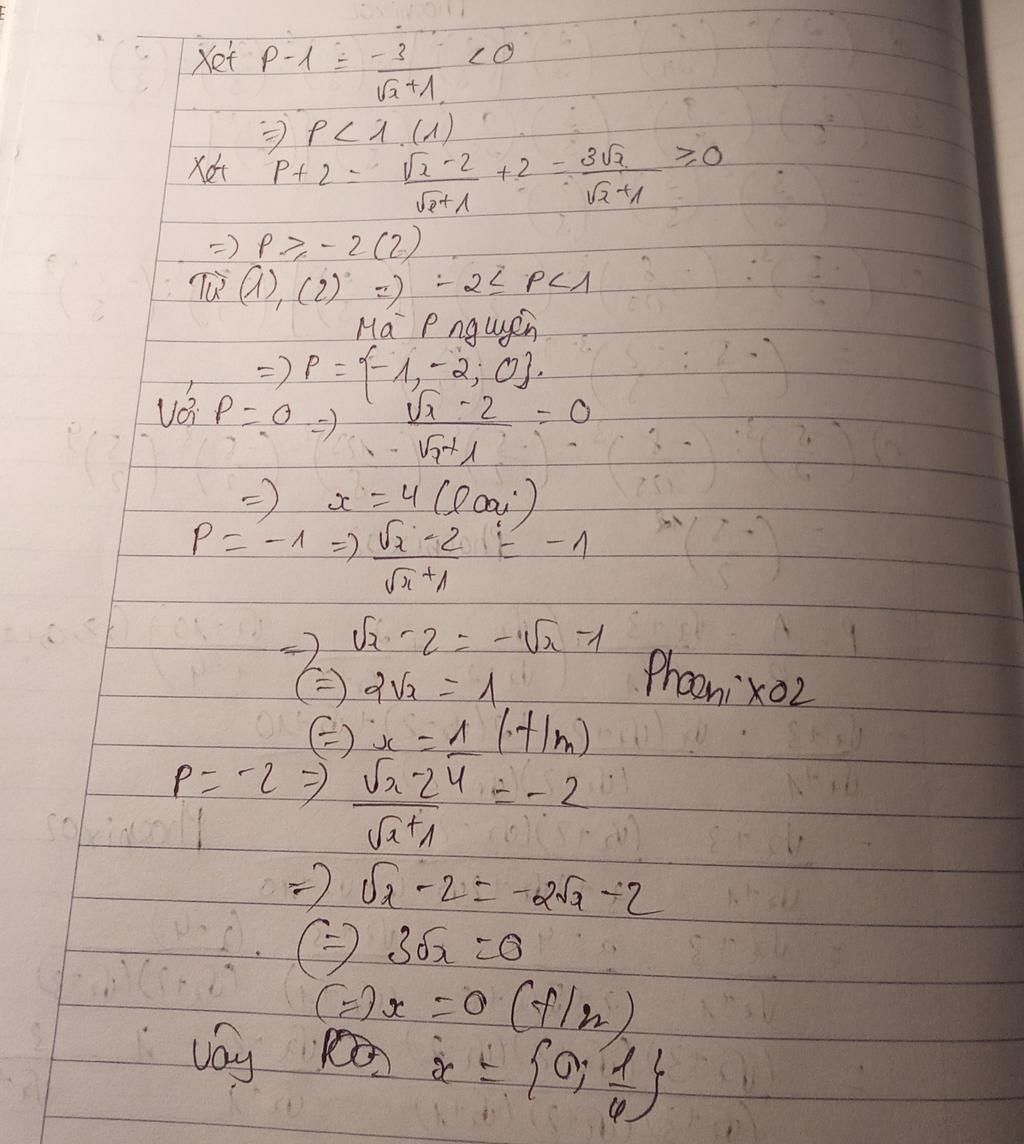 Xét P-1 = -3/(√x+1) < 0
=> P < 1 (1)
Xét P+2 = (√x-2)/(√x+1) + 2 = 3√x/(√x+1) ≥ 0
=> P ≥ -2 (2)
Từ (1), (2) => -2 ≤ P < 1
Mà P nguyên
=> P = {-1, -2; 0}.
Với P = 0 => (√x-2)/(√x+1) = 0
=> x = 4 (loại)
P = -1 => (√x-2)/(√x+1) = -1
=> √x - 2 = -√x - 1
(=) 2√x = 1
Phoenix02
(=) x = 1/4 (t/m)
P = -2 => (√x-2)/(√x+1) = -2
=> √x - 2 = -2√x - 2
(=) 3√x = 0
(=) x = 0 (t/m)
Vậy x = {0; 1/4}